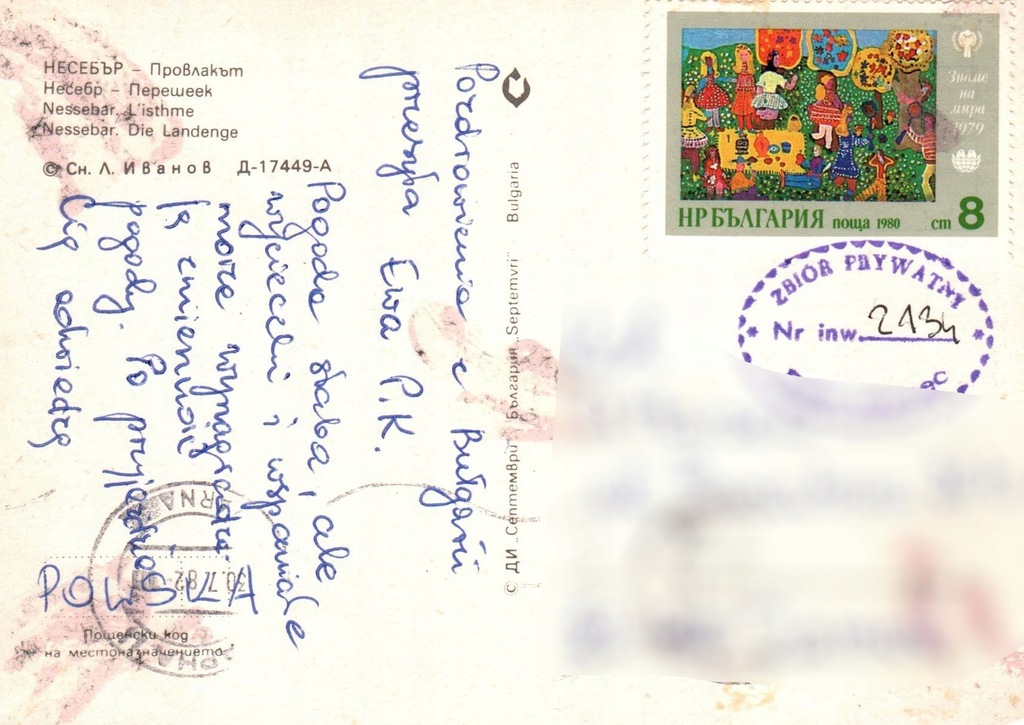 НЕСЕБЪР – Провлакът
Несебр – Перешеек
Nessebar. L'isthme
Nessebar. Die Landenge
© Сн. Л. Иванов Д-17449-А
Pozdrowienia z Bułgarii
przesyła Ewa P.K.
Pogoda słaba, ale
wycieczki i wspaniałe
morze wynagradza
tę zmienność
pogody. Po przyjeździe
Cię odwiedzę
POLSKA
Пощенски код
на местоназначението
30.7.82
© ДИ „Септември" България „Septemvri" Bulgaria
Знаме
на
мира
1979
НР БЪЛГАРИЯ поща 1980 ст 8
ZBIÓR PRYWATNY
Nr inw. 2134